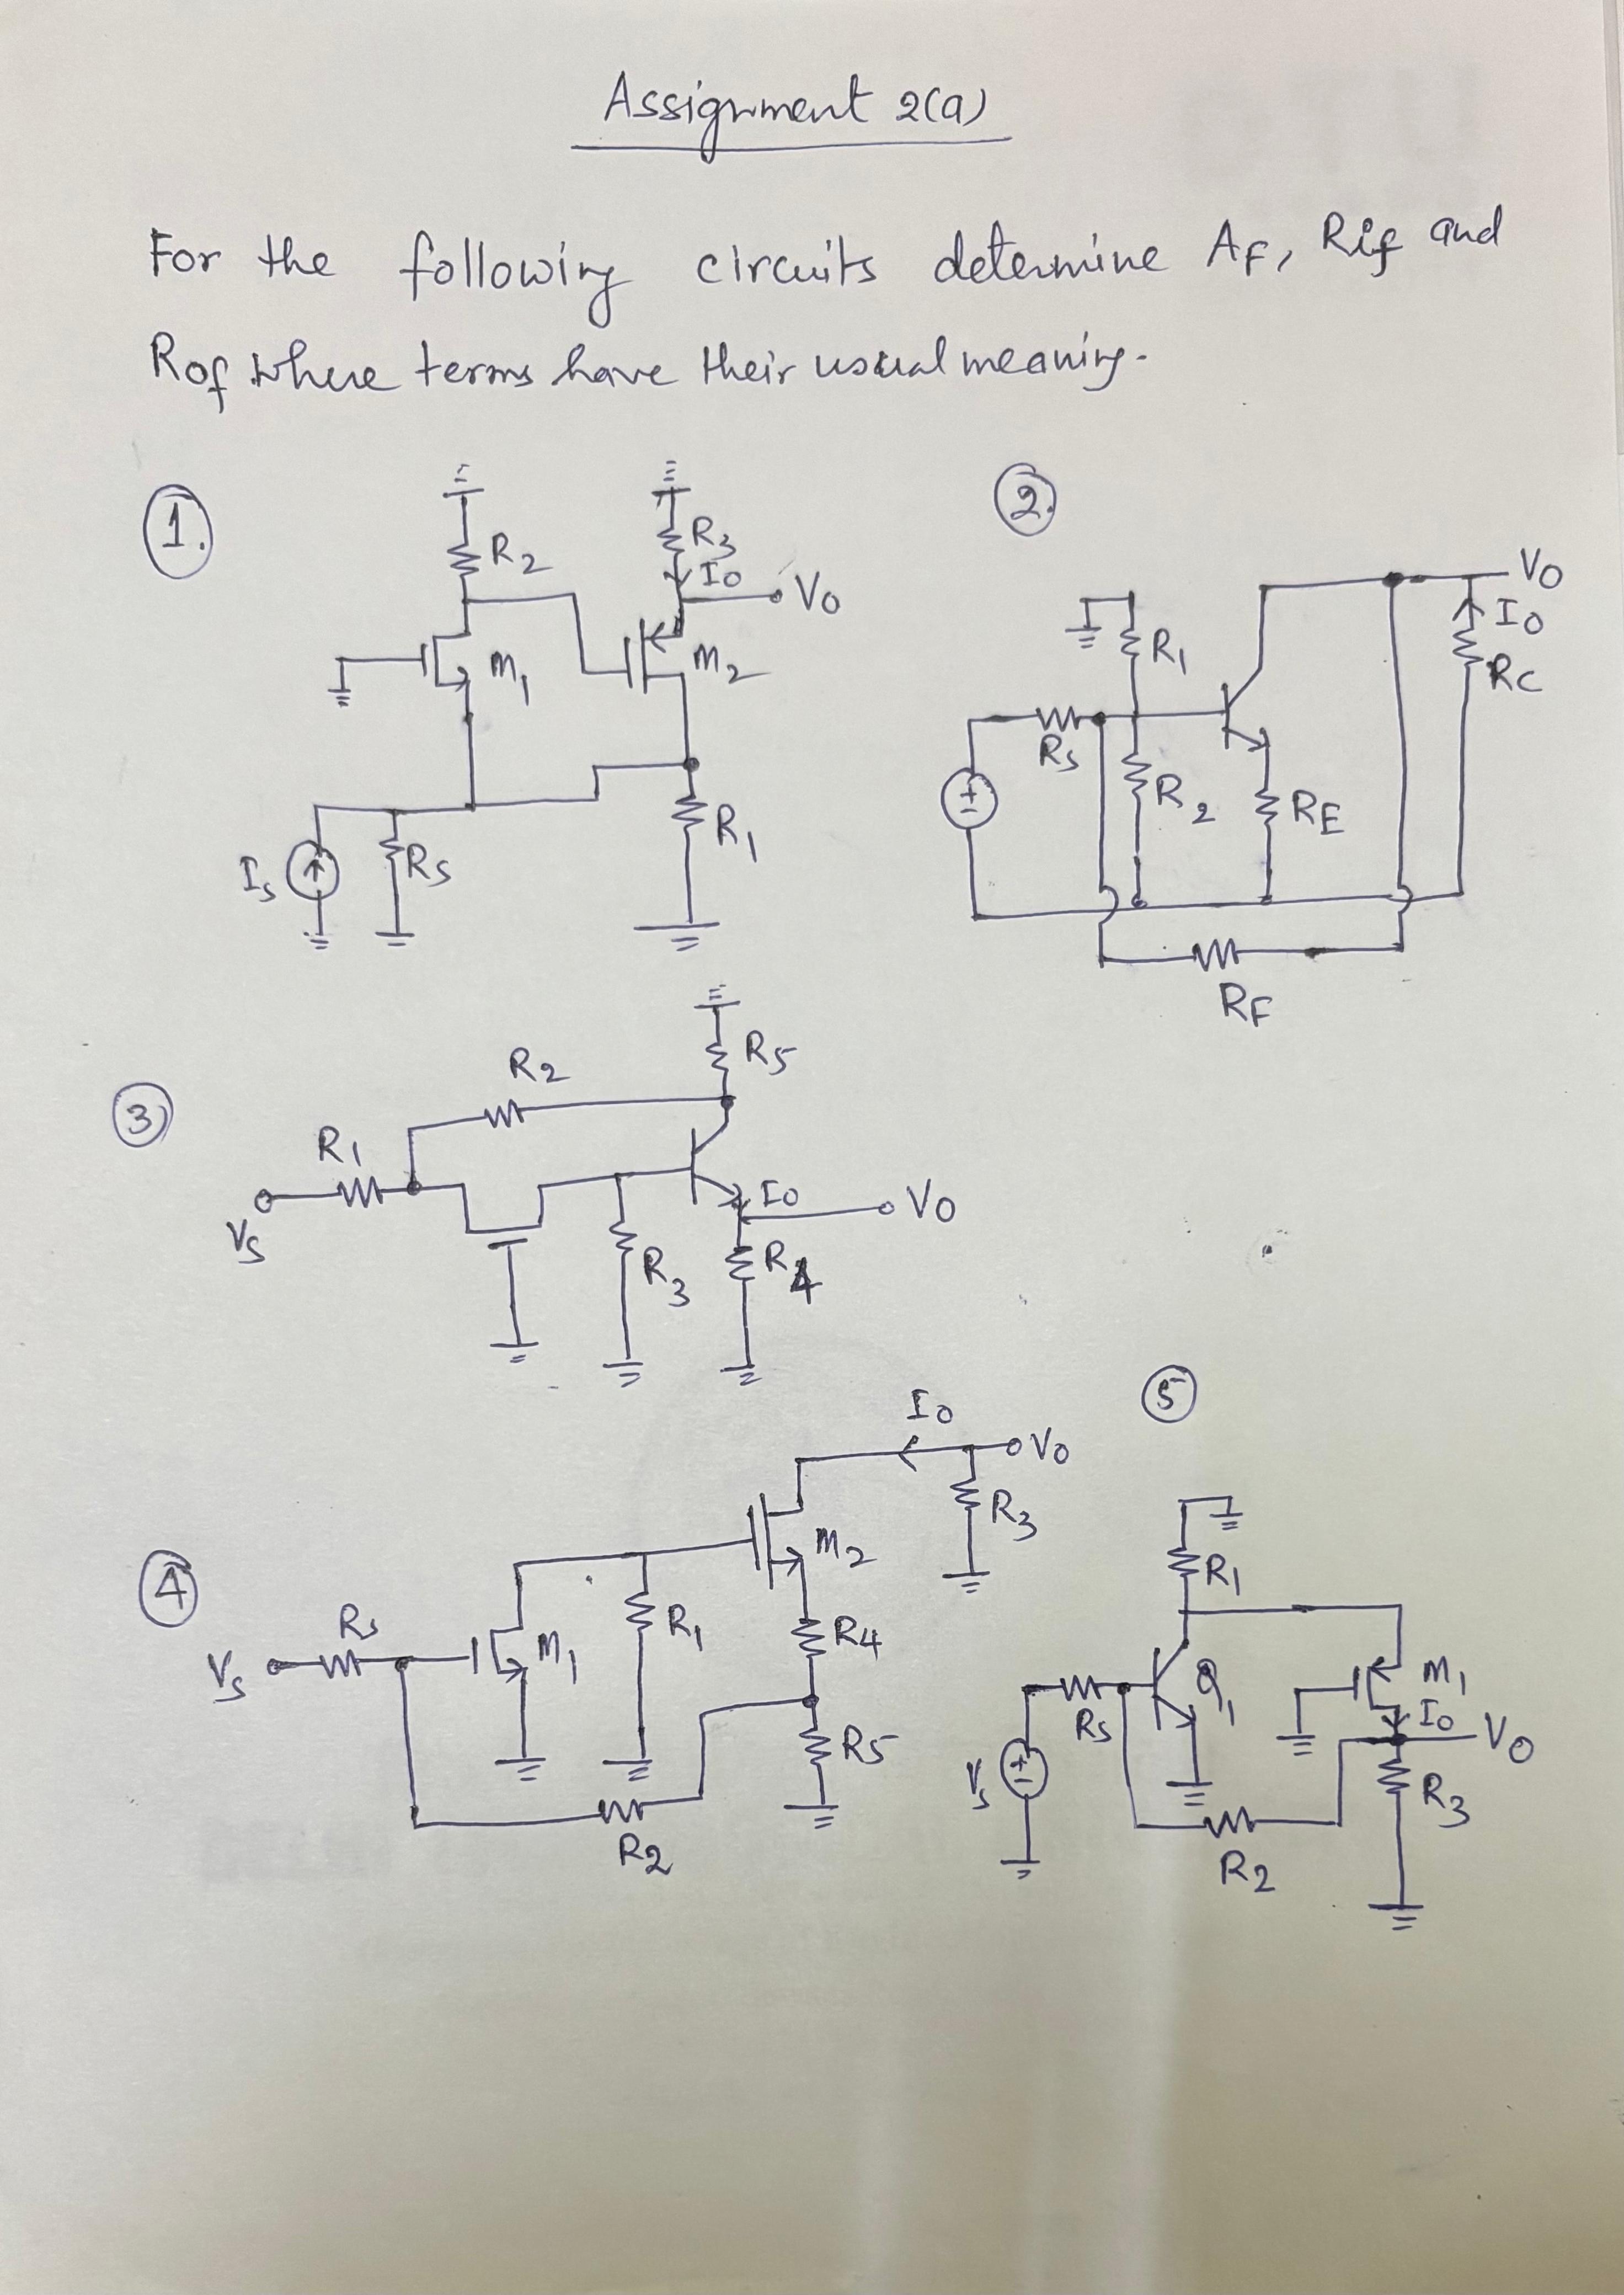 Assignment 2(a)
For the following circuits determine AF, Rif and
Rof where terms have their usual meaning.
1.
R2
R3
Io
Vo
M1
M2
Is
Rs
R1
2.
Vo
Io
R1
RC
Rs
+
-
R2
RE
RF
3
R5
R2
R1
Vs
Io
Vo
R3
R4
4
Io
Vo
R3
M2
Rs
Vs
M1
R1
R4
R5
R2
5
R1
Rs
Q1
M1
Io
Vo
Vs
+
-
R3
R2